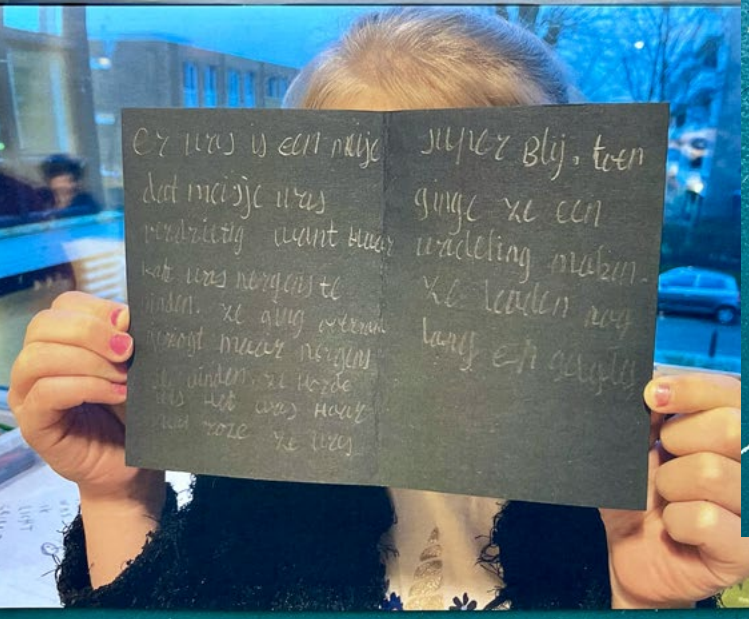 er was is een meisje
dat meisje was
verdrietig want haar
kat was nergens te
vinden. ze ging overal
gezogt maar nergens
te vinden. ze Horde
iets Het was Haar
roze ze was
super Blij. toen
ginge ze een
wadeling maken.
ze leaden nog
lang en